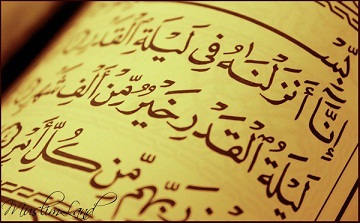 بِسْ
إِنَّآ أَنزَلْنَٰهُ فِى لَيْلَةِ ٱلْقَدْرِ
لَيْلَةُ ٱلْقَدْرِ خَيْرٌ مِّنْ أَلْفِ شَهْرٍ
رَبِّهِم مِّن كُلِّ أَمْرٍ
MuslimLand